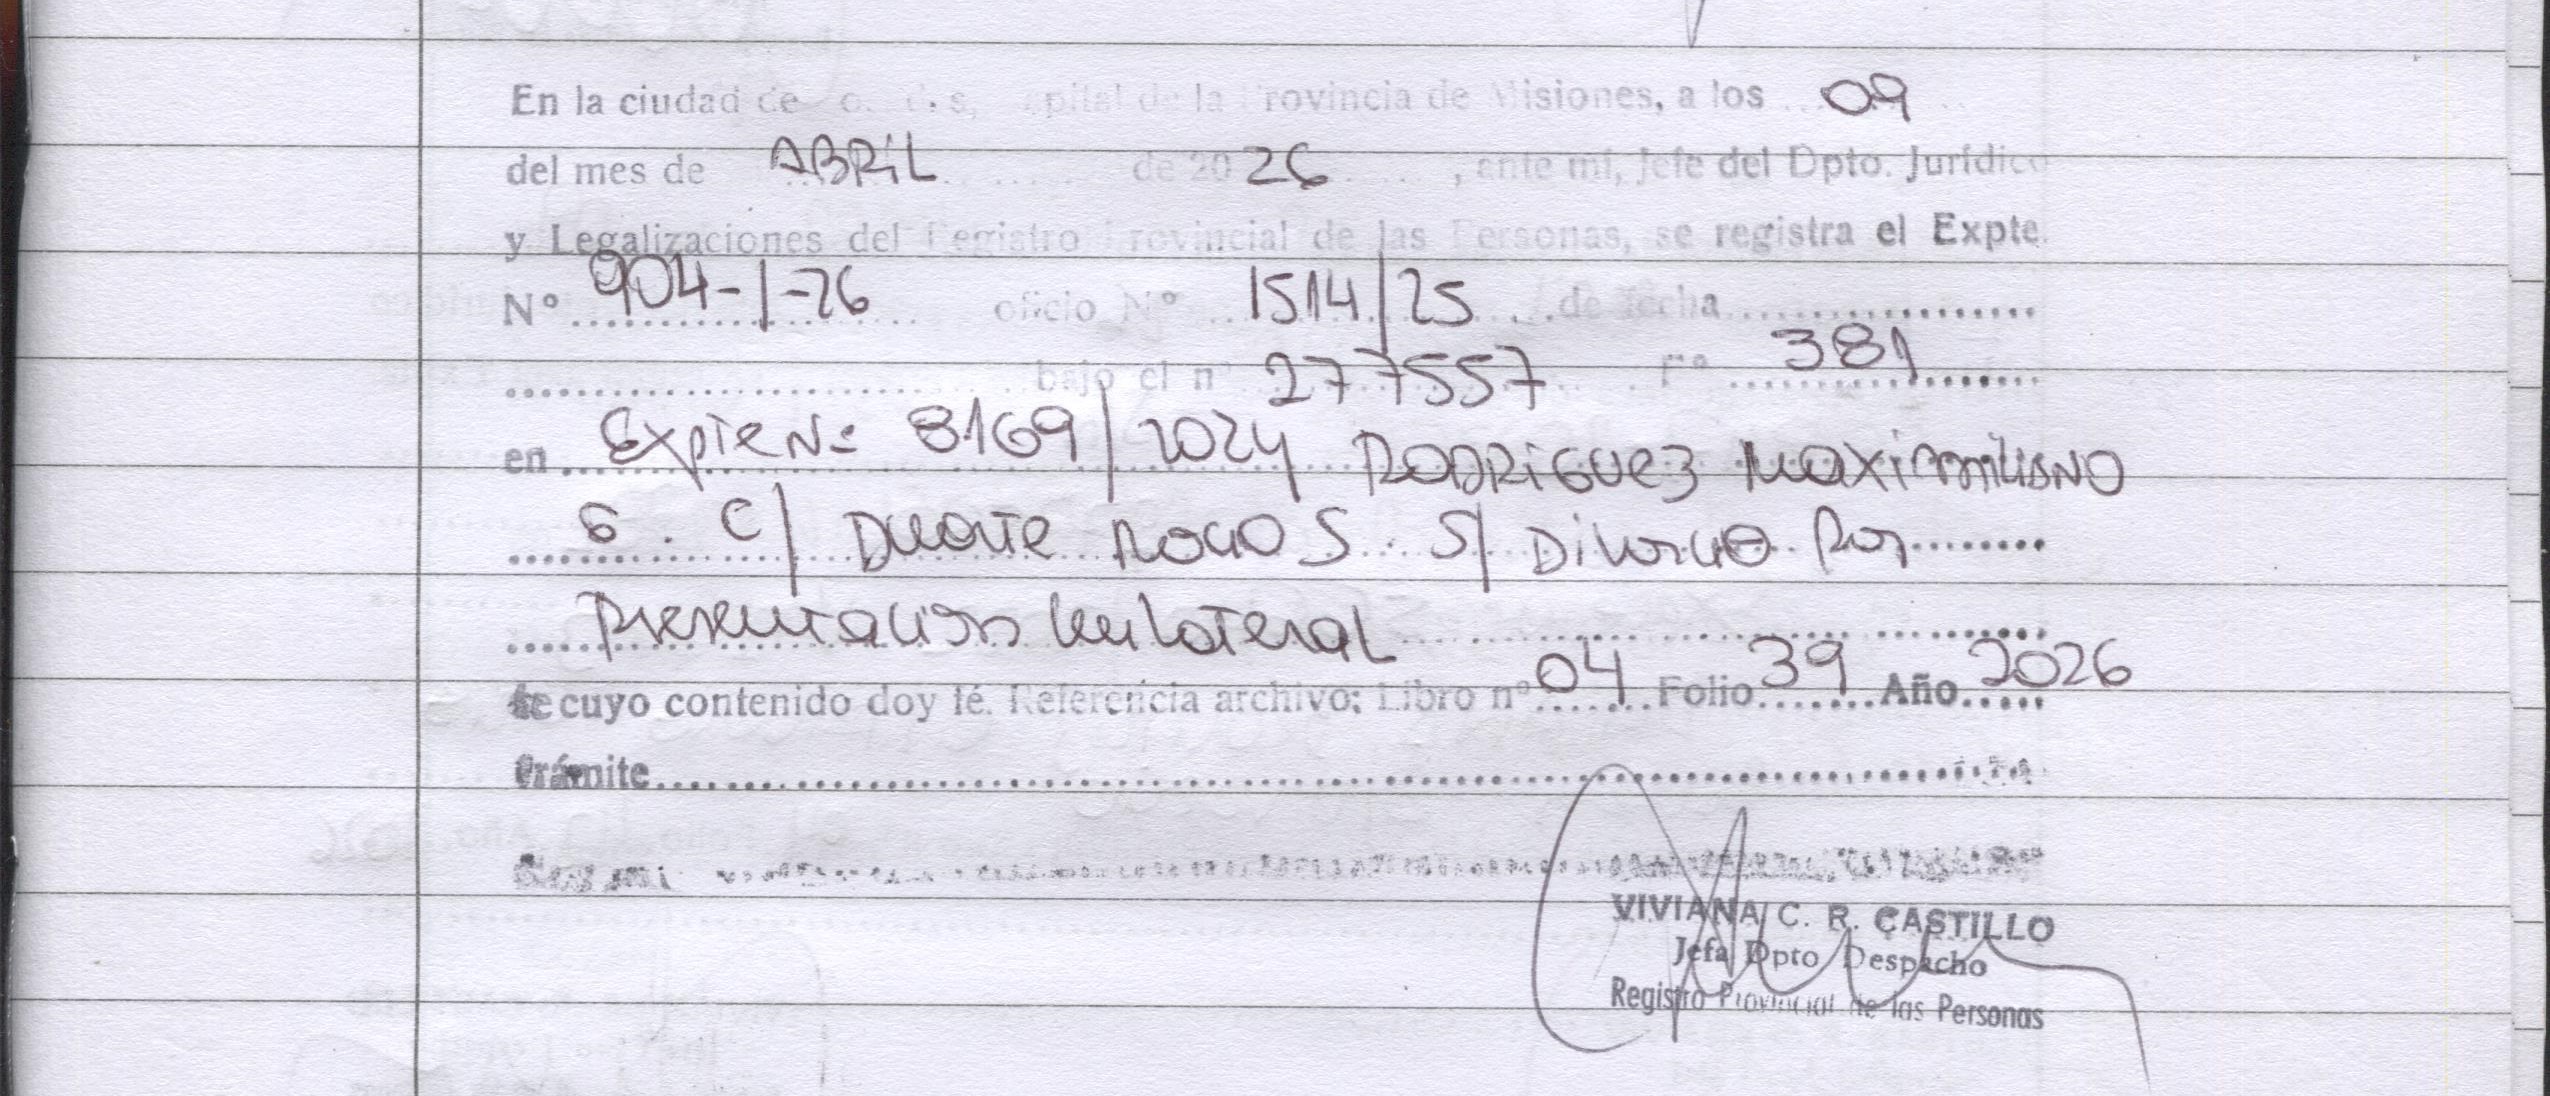 En la ciudad de Posadas, Capital de la Provincia de Misiones, a los 09
del mes de ABRIL de 2026, ante mí, Jefe del Dpto. Jurídico
y Legalizaciones del Registro Provincial de las Personas, se registra el Expte.
Nº 904-1-26 oficio Nº 1514/25 de fecha
bajo el nº 277557 Fº 381
en Expte Nº 8169/2024 RODRIGUEZ MAXIMILIANO
G. C/ Duarte Rocio S. S/ Divorcio Por
Presentacion Unilateral
de cuyo contenido doy fé. Referencia archivo: Libro nº 04 Folio 39 Año 2026
trámite
VIVIANA C. R. CASTILLO
Jefa Dpto Despacho
Registro Provincial de las Personas